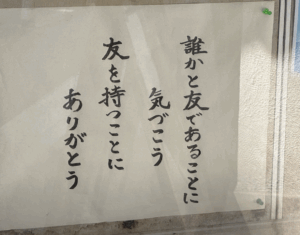 誰かと友であることに
気づこう
友を持つことに
ありがとう